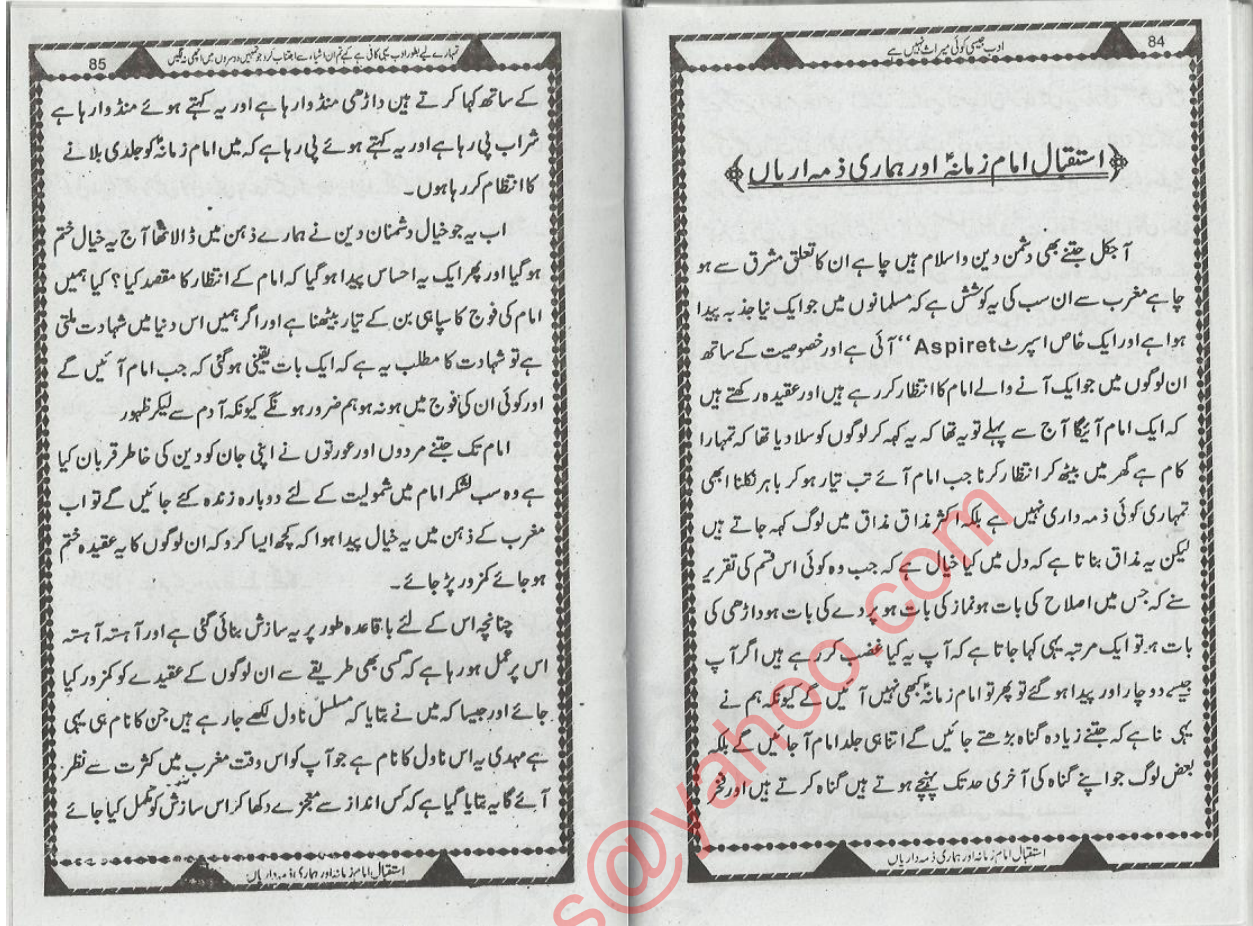 84
ادب جیسی کوئی میراث نہیں ہے
﴿استقبال امام زمانہؑ اور ہماری ذمہ داریاں﴾
آجکل جتنے بھی دشمن دین و اسلام ہیں چاہے ان کا تعلق مشرق سے ہو
چاہے مغرب سے ان سب کی یہ کوشش ہے کہ مسلمانوں میں جو ایک نیا جذبہ پیدا
ہوا ہے اور ایک خاص اسپرٹ Aspiret‘‘ آئی ہے اور خصوصیت کے ساتھ
ان لوگوں میں جو ایک آنے والے امام کا انتظار کر رہے ہیں اور عقیدہ رکھتے ہیں
کہ ایک امام آئیگا آج سے پہلے تو یہ تھا کہ یہ کہہ کر لوگوں کو سلا دیا تھا کہ تمہارا
کام ہے گھر میں بیٹھ کر انتظار کرنا جب امام آئے تب تیار ہو کر باہر نکلنا ابھی
تمہاری کوئی ذمہ داری نہیں ہے بلکہ اکثر مذاق مذاق میں لوگ کہہ جاتے ہیں
لیکن یہ مذاق بناتا ہے کہ دل میں کیا خیال ہے کہ جب وہ کوئی اس قسم کی تقریر
سنے کہ جس میں اصلاح کی بات ہو نماز کی بات ہو پردے کی بات ہو داڑھی کی
بات ہو تو ایک مرتبہ یہی کہا جاتا ہے کہ آپ یہ کیا غضب کر رہے ہیں اگر آپ
جیسے دو چار اور پیدا ہو گئے تو پھر تو امام زمانہؑ کبھی نہیں آئیں گے کیونکہ ہم نے
یہی نا ہے کہ جتنے زیادہ گناہ بڑھتے جائیں گے اتنا ہی جلد امام آ جائیں گے بلکہ
بعض لوگ جو اپنے گناہ کی آخری حد تک پہنچے ہوتے ہیں گناہ کرتے ہیں اور فخر
استقبال امام زمانہ اور ہماری ذمہ داریاں
85
تمہارے لیے بطور ادب یہی کافی ہے کہ تم ان اشیاء سے اجتناب کرو جو تمہیں دوسروں میں اچھی نہ لگیں
کے ساتھ کہا کرتے ہیں داڑھی منڈوا رہا ہے اور یہ کہتے ہوئے منڈوا رہا ہے
شراب پی رہا ہے اور یہ کہتے ہوئے پی رہا ہے کہ میں امام زمانہؑ کو جلدی بلانے
کا انتظام کر رہا ہوں۔
اب یہ جو خیال دشمنان دین نے ہمارے ذہن میں ڈالا تھا آج یہ خیال ختم
ہو گیا اور پھر ایک یہ احساس پیدا ہو گیا کہ امام کے انتظار کا مقصد کیا؟ کیا ہمیں
امام کی فوج کا سپاہی بن کے تیار بیٹھنا ہے اور اگر ہمیں اس دنیا میں شہادت ملتی
ہے تو شہادت کا مطلب یہ ہے کہ ایک بات یقینی ہو گئی کہ جب امام آئیں گے
اور کوئی ان کی فوج میں ہو نہ ہو ہم ضرور ہونگے کیونکہ آدم سے لیکر ظہور
امام تک جتنے مردوں اور عورتوں نے اپنی جان کو دین کی خاطر قربان کیا
ہے وہ سب لشکر امام میں شمولیت کے لئے دوبارہ زندہ کئے جائیں گے تو اب
مغرب کے ذہن میں یہ خیال پیدا ہوا کہ کچھ ایسا کرو کہ ان لوگوں کا یہ عقیدہ ختم
ہو جائے کمزور پڑ جائے۔
چنانچہ اس کے لئے باقاعدہ طور پر یہ سازش بنائی گئی ہے اور آہستہ آہستہ
اس پر عمل ہو رہا ہے کہ کسی بھی طریقے سے ان لوگوں کے عقیدے کو کمزور کیا
جائے اور جیسا کہ میں نے بتایا کہ مسلسل ناول لکھے جا رہے ہیں جن کا نام ہی یہی
ہے مہدی یہ اس ناول کا نام ہے جو آپ کو اس وقت مغرب میں کثرت سے نظر
آئے گا یہ بتایا گیا ہے کہ کس انداز سے معجزے دکھا کر اس سازش کو مکمل کیا جائے
استقبال امام زمانہ اور ہماری ذمہ داریاں
s@yahoo.com